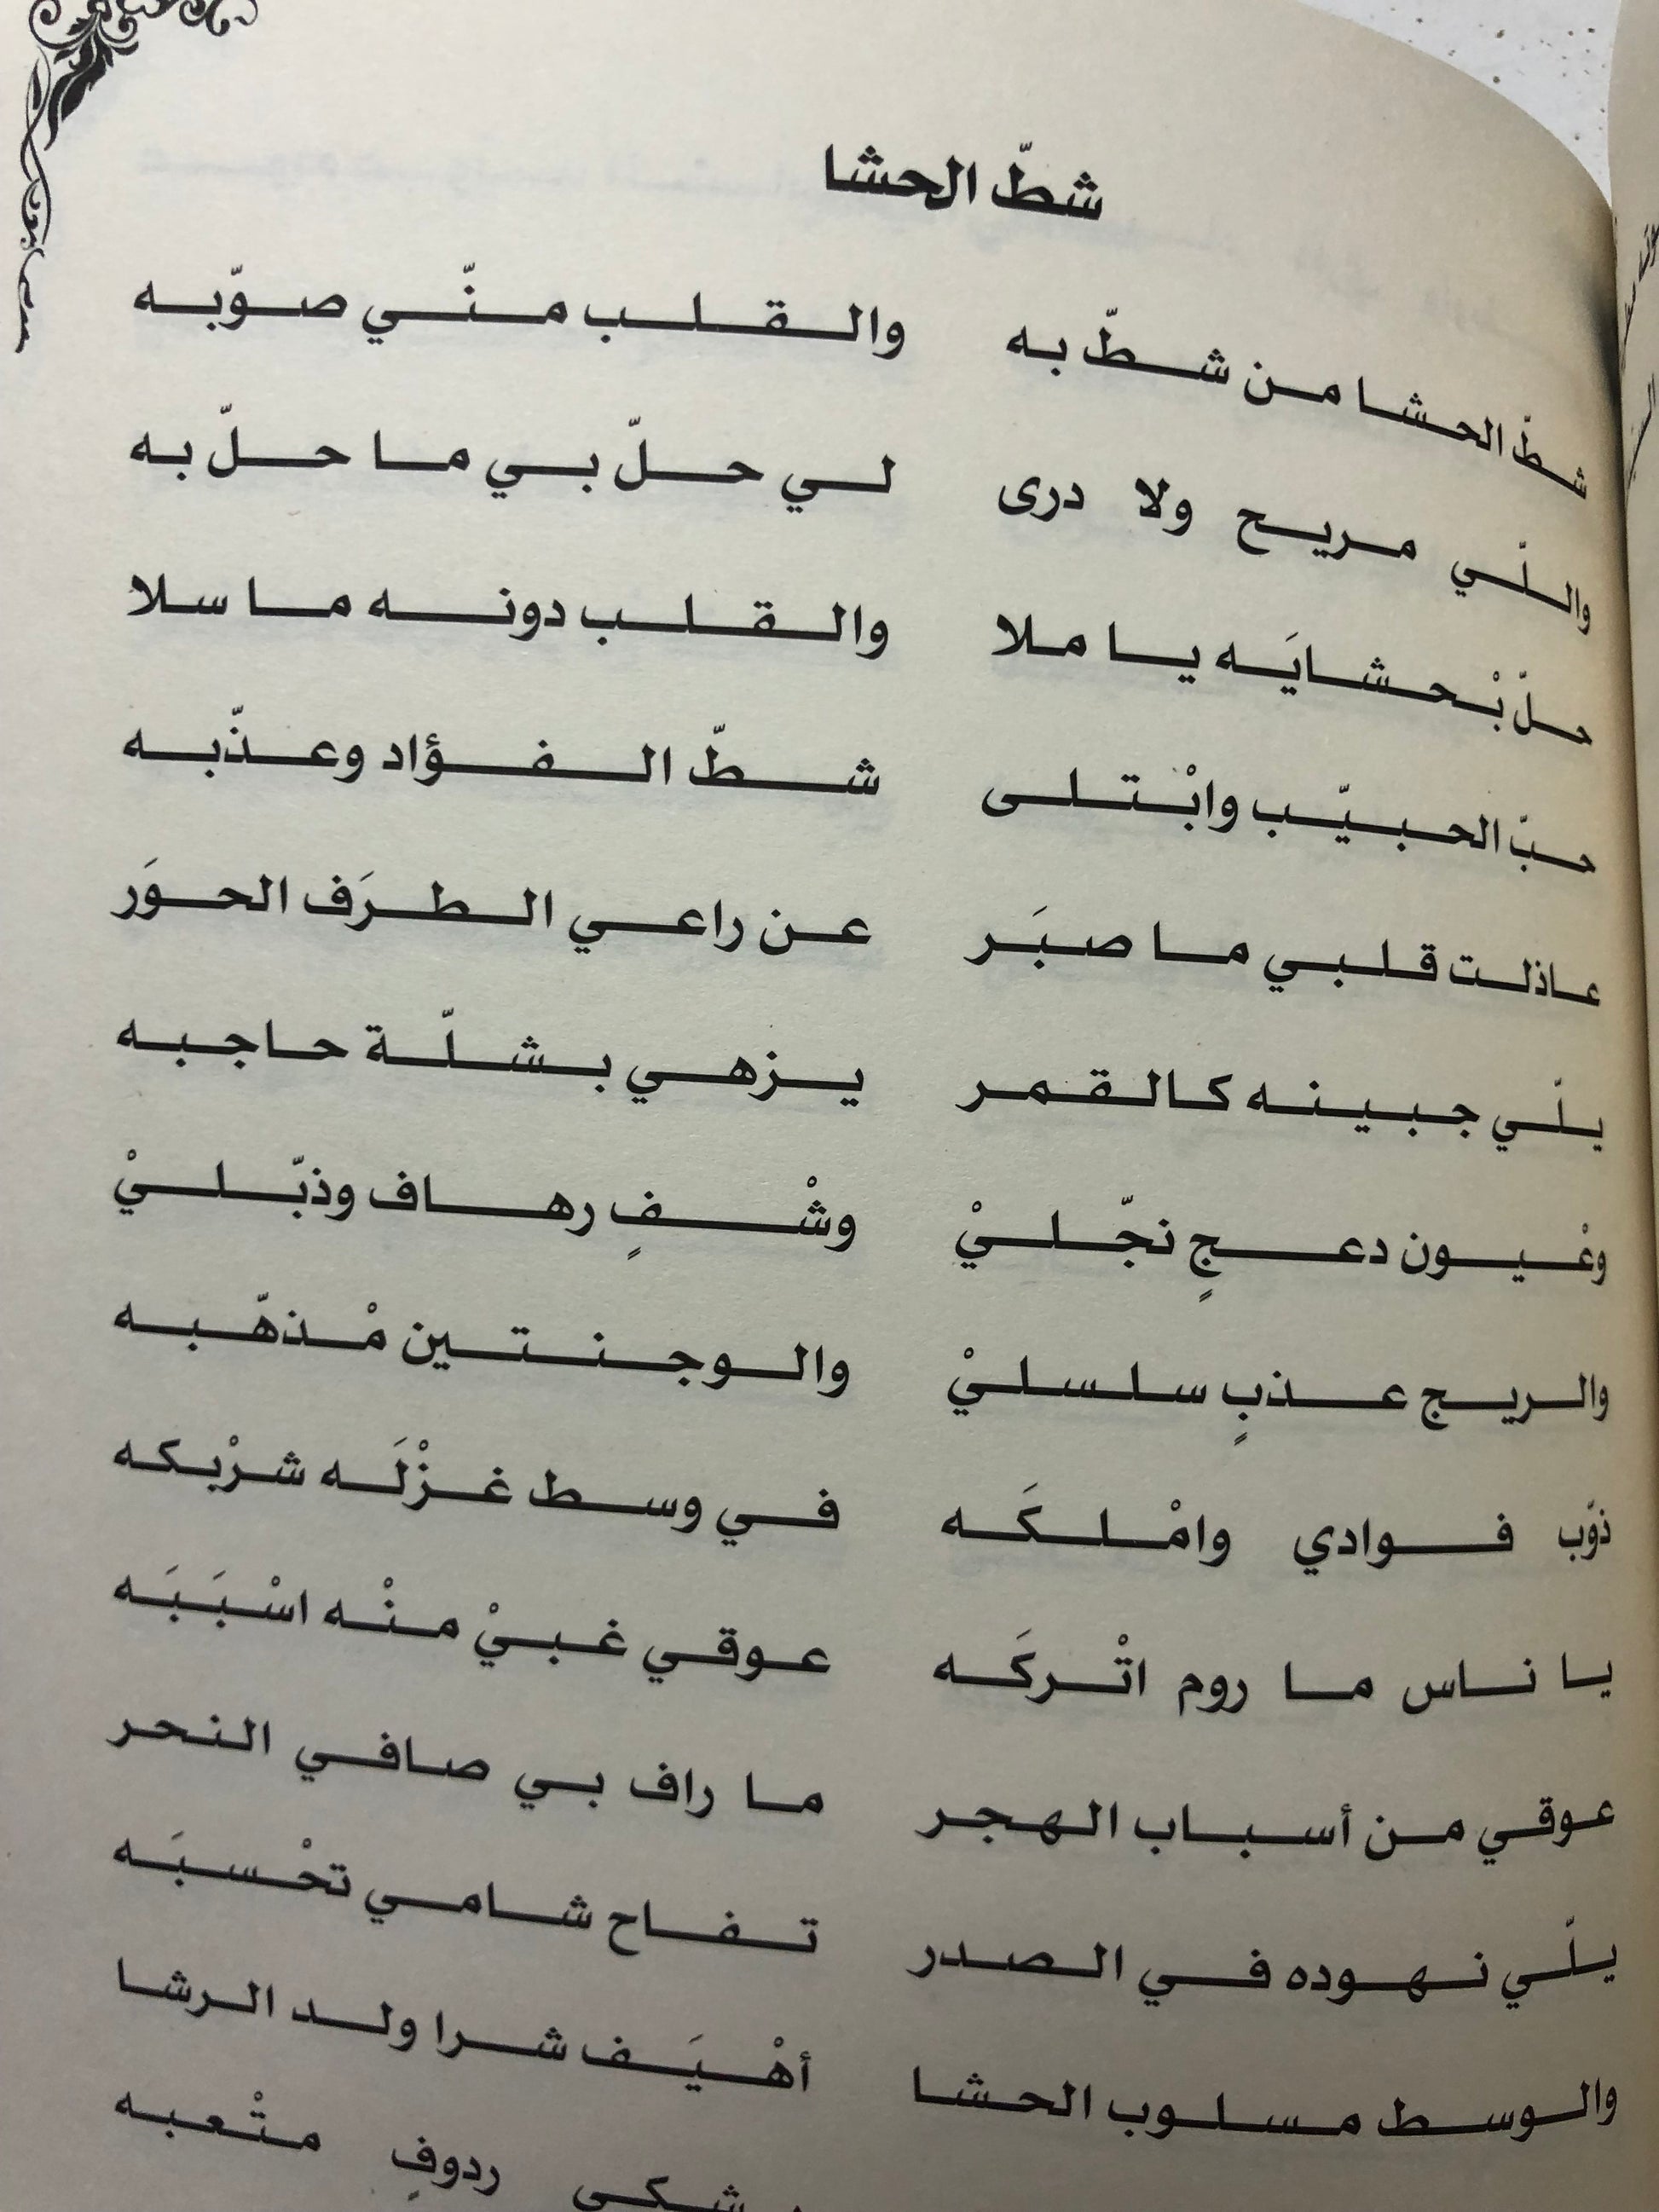 شطّ الحشا
شطّ الحشا من شطّ به والقلب منّي صوّبه
واللّي مريح ولا درى لي حلّ بي ما حلّ به
حلّ بْحشايَه يا ملا والقلب دونه ما سلا
حبّ الحبيّب وابْتلى شطّ الفؤاد وعذّبه
عاذلت قلبي ما صبَر عن راعي الطرَف الحوَر
يلّي جبينه كالقمر يزهي بشلّة حاجبه
وعْيون دعجٍ نجّليْ وشْفٍ رهاف وذبّليْ
والريج عذبٍ سلسليْ والوجنتين مْذهّبه
ذوّب فوادي وامْلكَه في وسط غزْلَه شرْبكه
يا ناس ما روم اتْركَه عوقي غبيْ منْه اسْبَبَه
عوقي من أسباب الهجر ما راف بي صافي النحر
يلّي نهوده في الصدر تفاح شامي تحْسبَه
والوسط مسلوب الحشا أهْيَف شرا ولد الرشا
ردوفٍ متْعبه